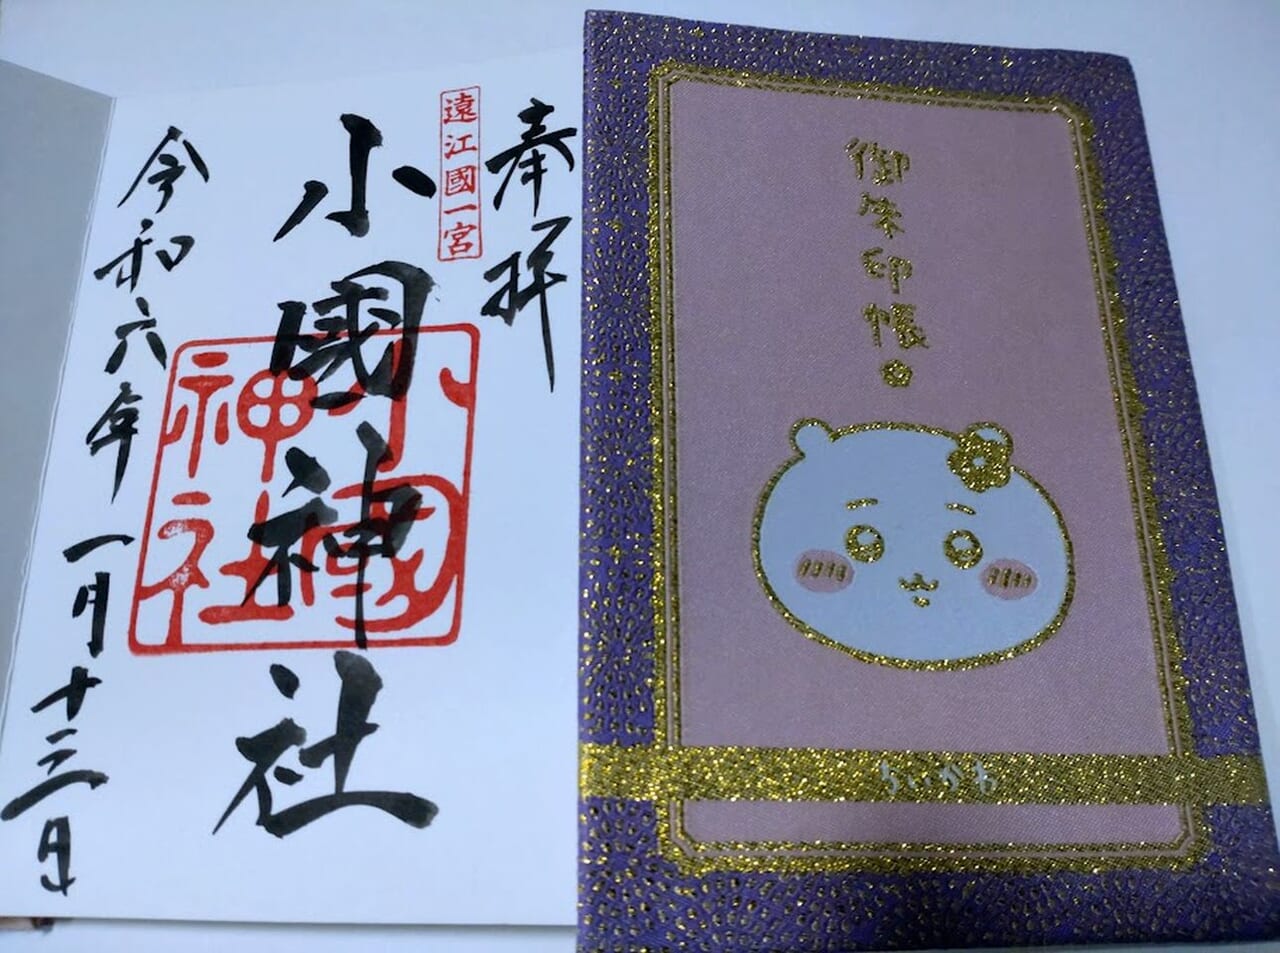 奉拝
遠江國一宮
小國神社
小國神社
令和六年一月十三日
御朱印帳。
ちいかわ